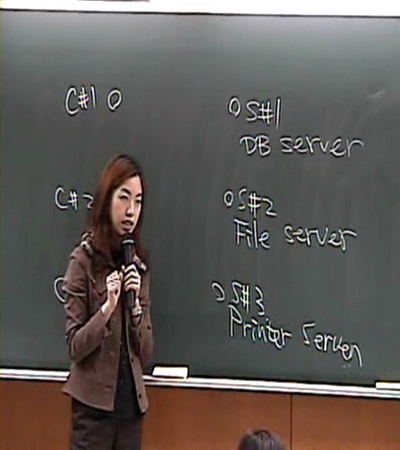 C#1 O
O S#1
DB server
C#2
O S#2
File server
C
O S#3
Printer Server